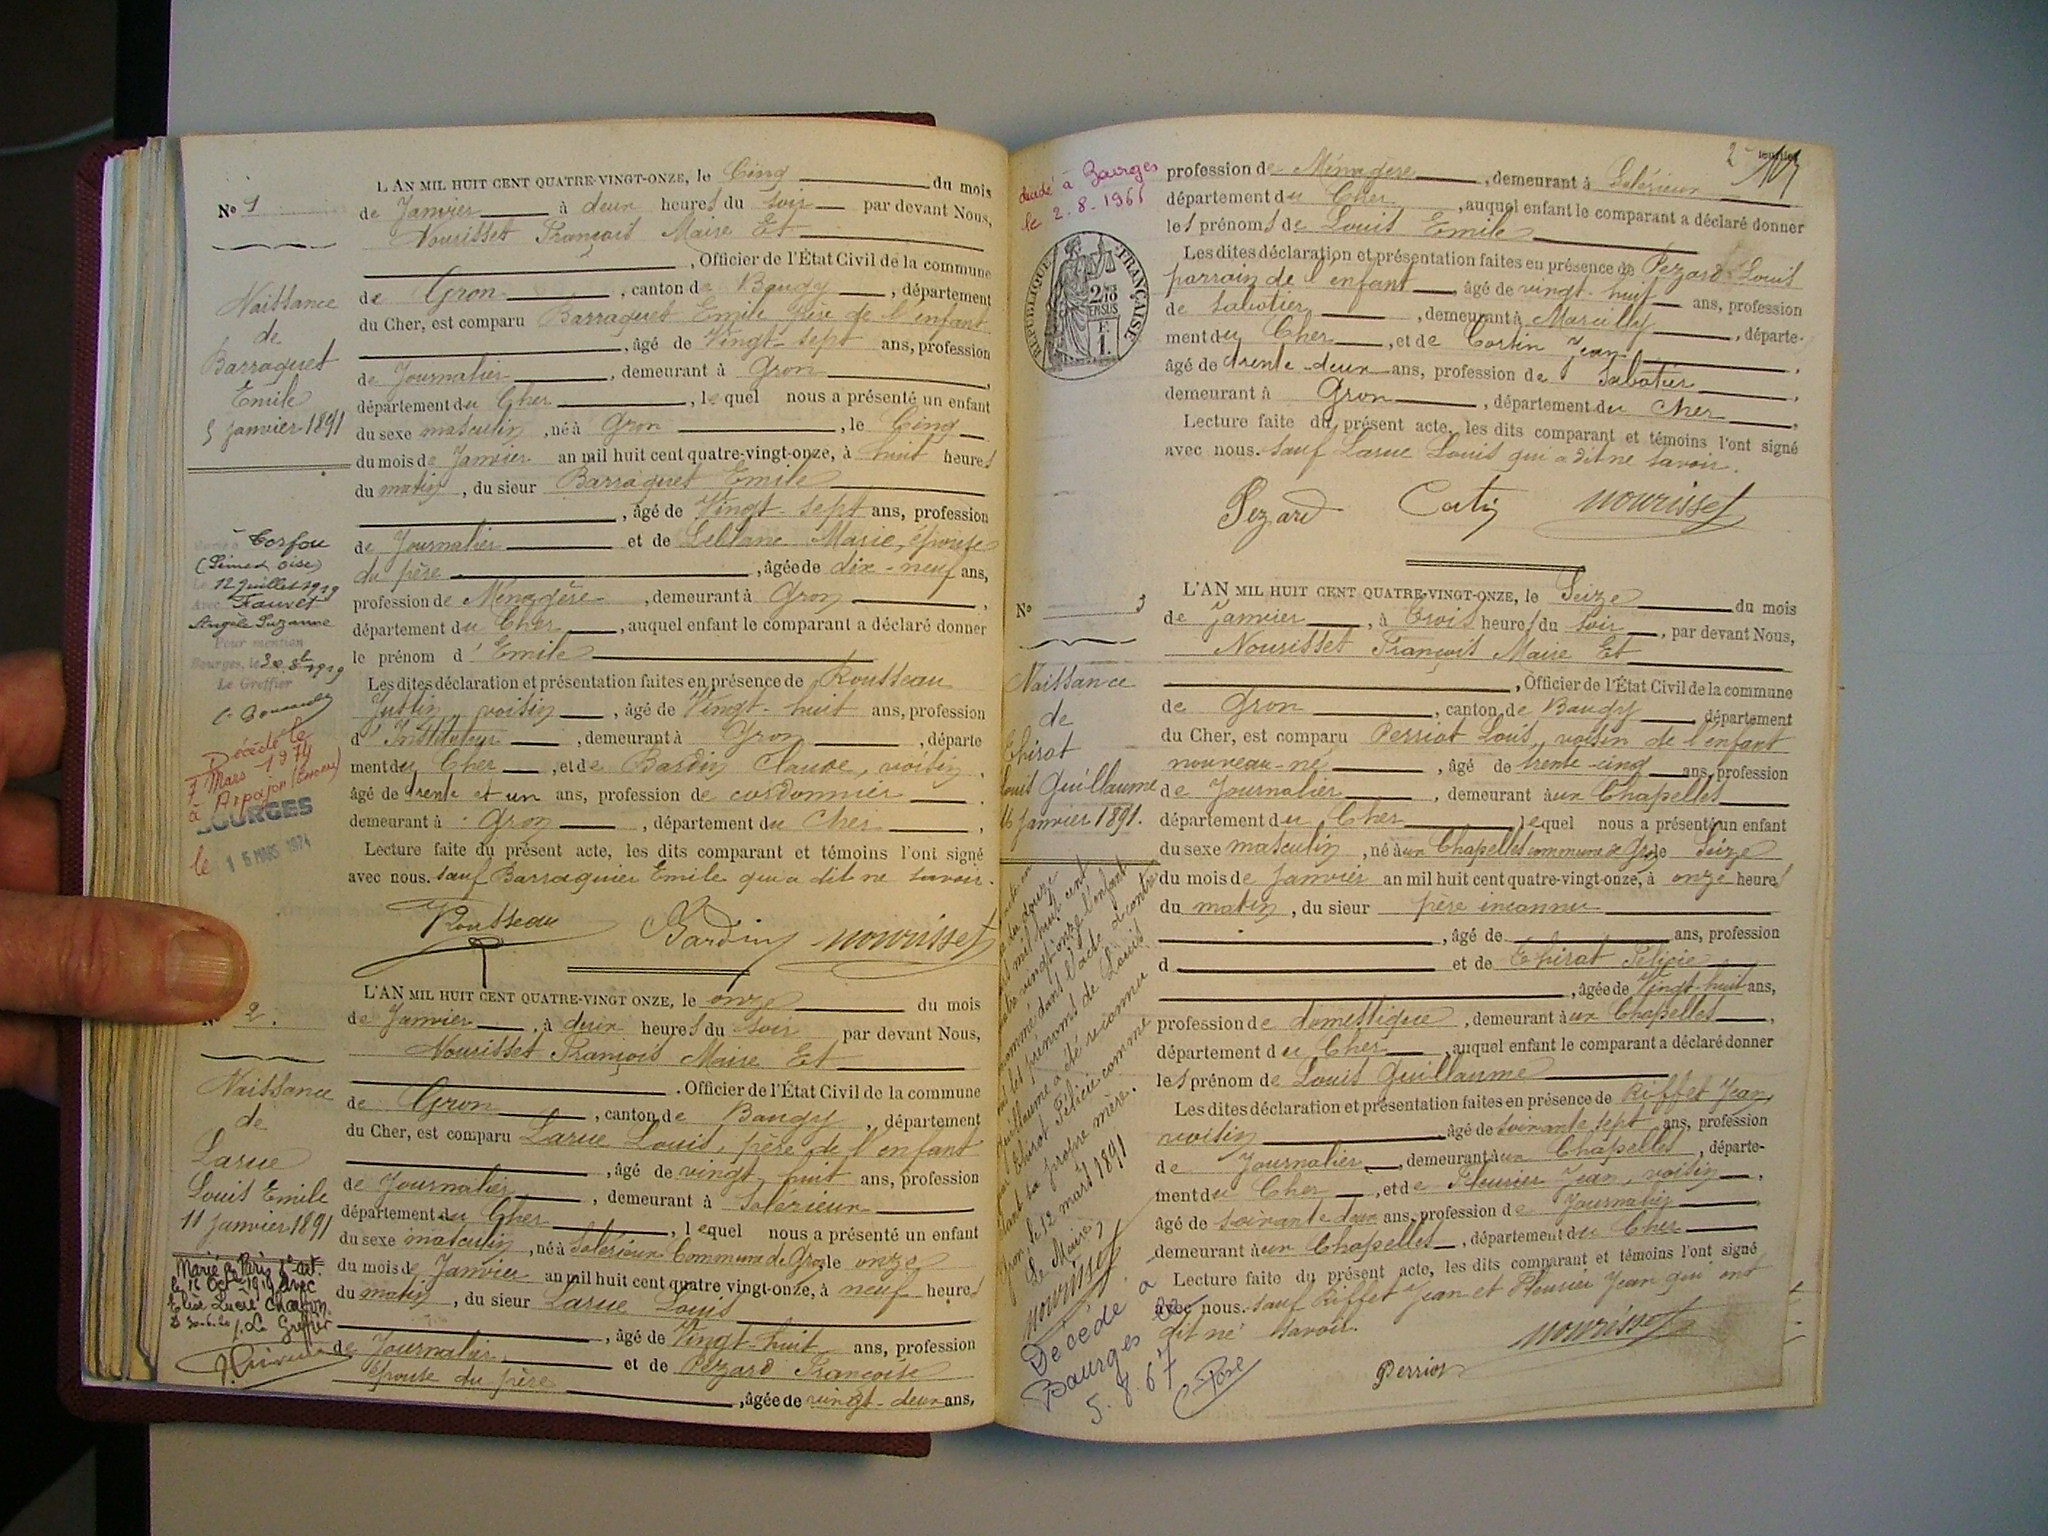 L'AN MIL HUIT CENT QUATRE-VINGT-ONZE, le Cinq du mois
No 1
de Janvier à deux heures du soir par devant Nous,
Nourisset François Maire Et
, Officier de l'État Civil de la commune
de Gron, canton de Baugy, département
du Cher, est comparu Barraquet Emile père de l'enfant
, âgé de Vingt-sept ans, profession
de Journalier, demeurant à Gron,
département du Cher, lequel nous a présenté un enfant
du sexe masculin, né à Gron, le Cinq
du mois de Janvier an mil huit cent quatre-vingt-onze, à huit heures
du matin, du sieur Barraquet Emile
, âgé de Vingt-sept ans, profession
de Journalier et de Leblanc Marie, épouse
du père, âgée de dix-neuf ans,
profession de Ménagère, demeurant à Gron,
département du Cher, auquel enfant le comparant a déclaré donner
le prénom d'Emile
Les dites déclaration et présentation faites en présence de Rousseau
Justin, voisin, âgé de Vingt-huit ans, profession
d'Instituteur, demeurant à Gron, départe
ment du Cher, et de Bardin Claude, voisin,
âgé de trente et un ans, profession de cordonnier,
demeurant à Gron, département du Cher,
Lecture faite du présent acte, les dits comparant et témoins l'ont signé
avec nous. sauf Barraquier Emile qui a dit ne savoir.
Rousseau Bardin Nourisset
Naissance
de
Barraquet
Emile
5 Janvier 1891
Torfou
12 Juillet 1919
Avec Fauvet
Angèle Suzanne
Pour mention
Bourges, le
Le Greffier
Décédé le
7 Mars 1974
à Arpajon (Essonne)
BOURGES
le 15 MARS 1974
L'AN MIL HUIT CENT QUATRE-VINGT ONZE, le onze du mois
No 2.
de Janvier, à deux heures du soir par devant Nous,
Nourisset François Maire Et
. Officier de l'État Civil de la commune
de Gron, canton de Baugy, département
du Cher, est comparu Larue Louis, père de l'enfant
, âgé de vingt huit ans, profession
de Journalier, demeurant à Solérieux
département du Cher, lequel nous a présenté un enfant
du sexe masculin, né à Solérieux Commune de Gron le onze
du mois de Janvier an mil huit cent quatre vingt-onze, à neuf heures
du matin, du sieur Larue Louis
, âgé de Vingt-huit ans, profession
de Journalier et de Pezard Françoise
épouse du père, âgée de vingt-deux ans,
Naissance
de
Larue
Louis Emile
11 Janvier 1891
Marié à Paris
le 16 Oct 1919 avec
Charton.
Le Greffier
2e feuillet
profession de Ménagère, demeurant à Solérieux
département du Cher, auquel enfant le comparant a déclaré donner
les prénoms de Louis Emile
Les dites déclaration et présentation faites en présence de Pezard Louis
parrain de l'enfant, âgé de vingt-huit ans, profession
de sabotier, demeurant à Marcilly, départe-
ment du Cher, et de Cortin Jean,
âgé de trente-deux ans, profession de Sabotier,
demeurant à Gron, département du Cher,
Lecture faite du présent acte, les dits comparant et témoins l'ont signé
avec nous. sauf Larue Louis qui a dit ne savoir.
Pezard Cortin Nourisset
décédé à Bourges
le 2.8.1961
RÉPUBLIQUE FRANÇAISE
L'AN MIL HUIT CENT QUATRE-VINGT-ONZE, le Seize du mois
No 3
de Janvier, à Trois heures du soir, par devant Nous,
Nourisset François Maire Et
, Officier de l'État Civil de la commune
de Gron, canton de Baugy, département
du Cher, est comparu Perriot Louis, voisin de l'enfant
nouveau-né, âgé de trente-cinq ans, profession
de Journalier, demeurant aux Chapelles
département du Cher lequel nous a présenté un enfant
du sexe masculin, né aux Chapelles commune de Gron le Seize
du mois de Janvier an mil huit cent quatre-vingt-onze, à onze heures
du matin, du sieur père inconnu
, âgé de ans, profession
d et de Thirot Félicie
, âgée de Vingt-huit ans,
profession de domestique, demeurant aux Chapelles,
département du Cher, auquel enfant le comparant a déclaré donner
les prénom de Louis Guillaume
Les dites déclaration et présentation faites en présence de Riffet Jean
voisin âgé de soixante sept ans, profession
de Journalier, demeurant aux Chapelles, départe-
ment du Cher, et de Fleurier Jean, voisin,
âgé de soixante deux ans, profession de Journalier
demeurant aux Chapelles, département du Cher
Lecture faite du présent acte, les dits comparant et témoins l'ont signé
avec nous. sauf Riffet Jean et Fleurier Jean qui ont
dit ne savoir.
Nourisset
Perriot
Naissance
de
Thirot
Louis Guillaume
16 Janvier 1891.
du douze
mil huit cent
quatre vingt onze l'enfant
nommé dans l'acte ci contre
les prénoms de Louis
Guillaume a été reconnu
par Thirot Félicie comme
étant sa propre mère.
Gron le 12 mars 1891
Le Maire,
Nourisset
Décédé à
Bourges
5.8.67